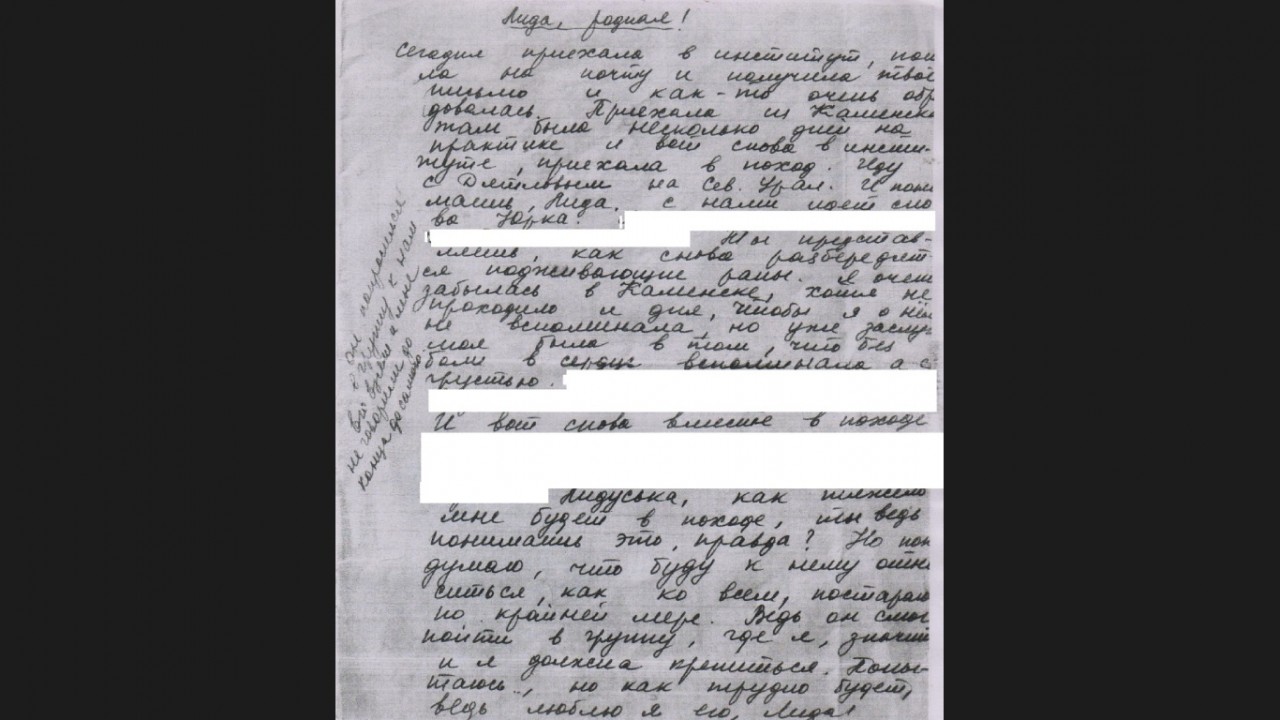 Лида, родная!
Сегодня приехала в институт, пош
ла на почту и получила твоё
письмо и как-то очень обр
довалась. Приехала из Каменска
там была несколько дней на
практике и вот снова в инсти-
туте, приехала в поход. Иду
с Дятловым на Сев. Урал. И пони
маешь, Лида, с нами идет сно
ва Юрка!
Ты представ-
ляешь, как снова разбередят
ся подживающие раны. Я очень
забылась в Каменске, хотя не
проходило и дня, чтобы я о нём
не вспоминала, но уже заслу
моя была в том, что без
боли в сердце вспоминала а с
грустью.
И вот снова вместе в походе
Лидуська, как тяжело
мне будет в походе, ты ведь
понимаешь это, правда? Но пок
думаю, что буду к нему отно
ситься, как ко всем, постараю
по крайней мере. Ведь он смог
пойти в группу, где я, значит
и я должна крепиться. Попы-
таюсь, но как трудно будет,
ведь люблю я его, Лида!
он попросился
в группу к нам
его взяли а мне
не говорили до
конца до самого